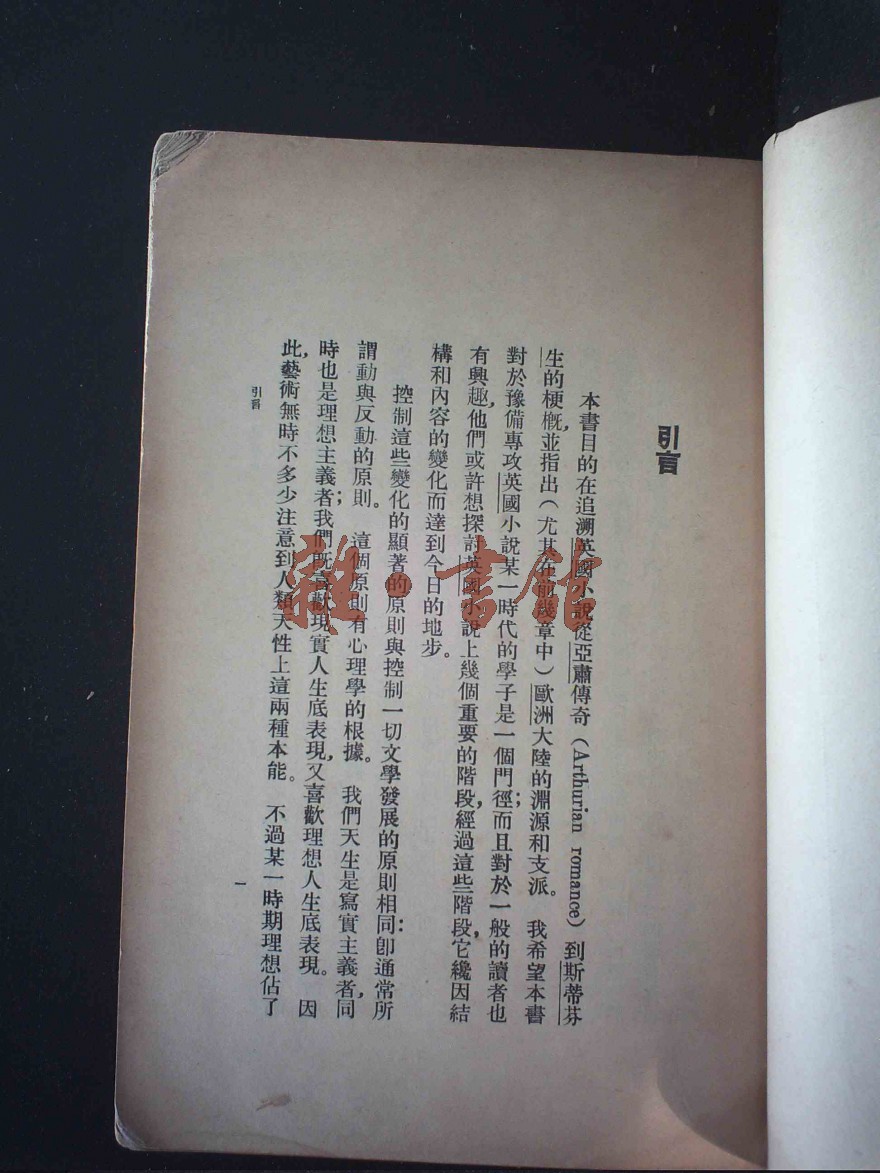 引言
本書目的在追溯英國小說從亞蕭傳奇(Arthurian romance)到斯蒂芬
生的梗概,並指出(尤其在前幾章中)歐洲大陸的淵源和支派。我希望本書
對於豫備專攻英國小說某一時代的學子是一個門徑;而且對於一般的讀者也
有興趣,他們或許想探討英國小說上幾個重要的階段,經過這些階段,它纔因結
構和內容的變化而達到今日的地步。
控制這些變化的顯著的原則與控制一切文學發展的原則相同:卽通常所
謂動與反動的原則。這個原則有心理學的根據。我們天生是寫實主義者,同
時也是理想主義者;我們既喜歡現實人生底表現,又喜歡理想人生底表現。因
此,藝術無時不多少注意到人類天性上這兩種本能。不過某一時期理想佔了
引言
一
雜·書館